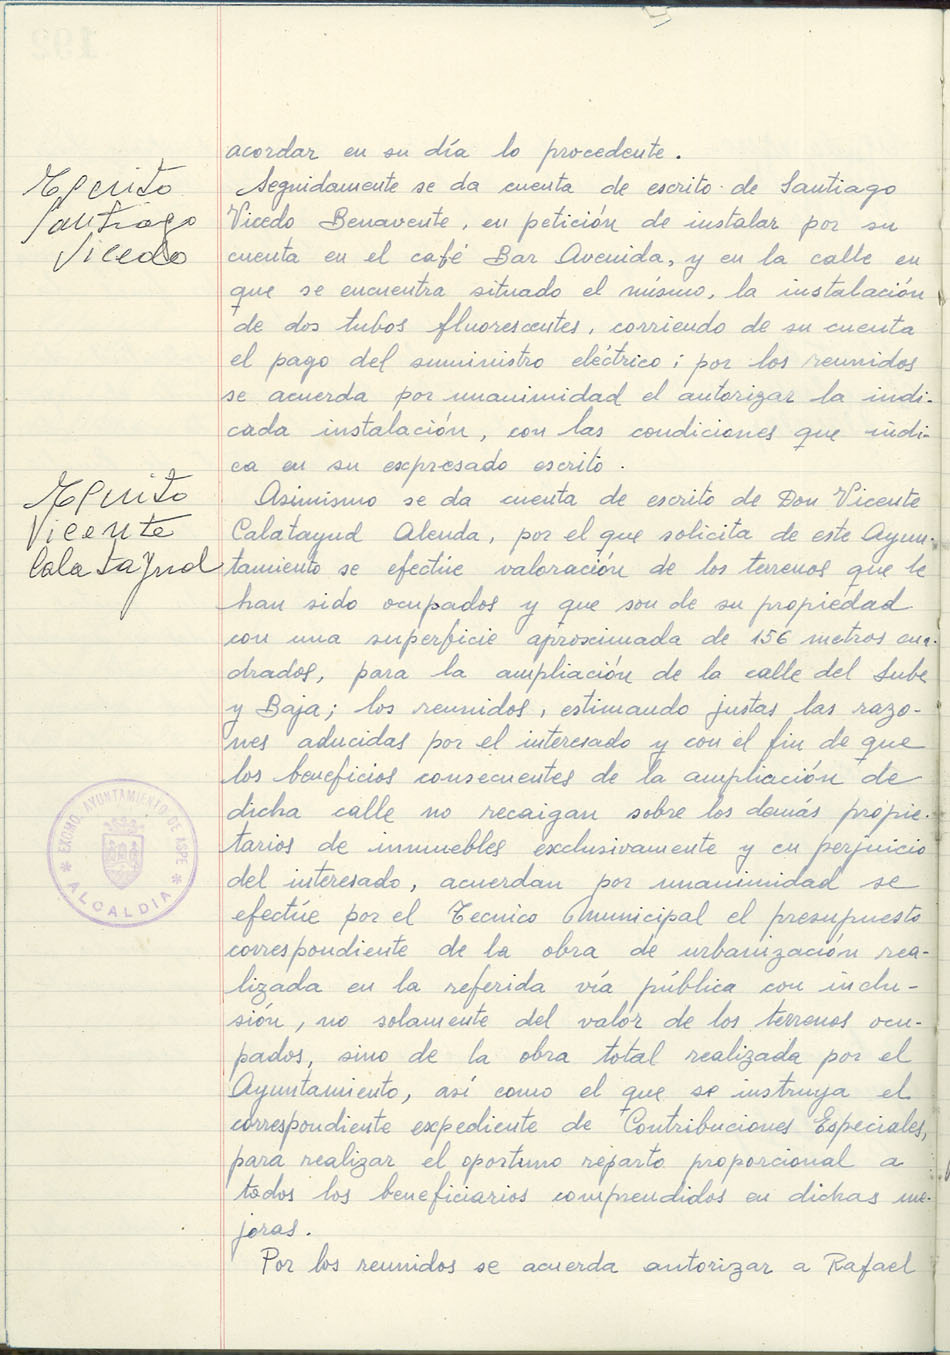 acordar en su día lo procedente.
Escrito
Santiago
Vicedo
Seguidamente se da cuenta de escrito de Santiago
Vicedo Benavente, en petición de instalar por su
cuenta en el café Bar Avenida, y en la calle en
que se encuentra situado el mismo, la instalación
de dos tubos fluorescentes, corriendo de su cuenta
el pago del suministro eléctrico; por los reunidos
se acuerda por unanimidad el autorizar la indi-
cada instalación, con las condiciones que indi-
ca en su expresado escrito.
Escrito
Vicente
Calatayud
Asimismo se da cuenta de escrito de Don Vicente
Calatayud Alenda, por el que solicita de este Ayun-
tamiento se efectúe valoración de los terrenos que le
han sido ocupados y que son de su propiedad
con una superficie aproximada de 156 metros cua-
drados, para la ampliación de la calle del Sube
y Baja; los reunidos, estimando justas las razo-
nes aducidas por el interesado y con el fin de que
los beneficios consecuentes de la ampliación de
dicha calle no recaigan sobre los demás propie-
tarios de inmuebles exclusivamente y en perjuicio
del interesado, acuerdan por unanimidad se
efectúe por el Tecnico municipal el presupuesto
correspondiente de la obra de urbanización rea-
lizada en la referida vía pública con inclu-
sión, no solamente del valor de los terrenos ocu-
pados, sino de la obra total realizada por el
Ayuntamiento, así como el que se instruya el
correspondiente expediente de Contribuciones Especiales,
para realizar el oportuno reparto proporcional a
todos los beneficiarios comprendidos en dichas me-
joras.
Por los reunidos se acuerda autorizar a Rafael
EXCMO. AYUNTAMIENTO DE ASPE
* ALCALDIA *
192